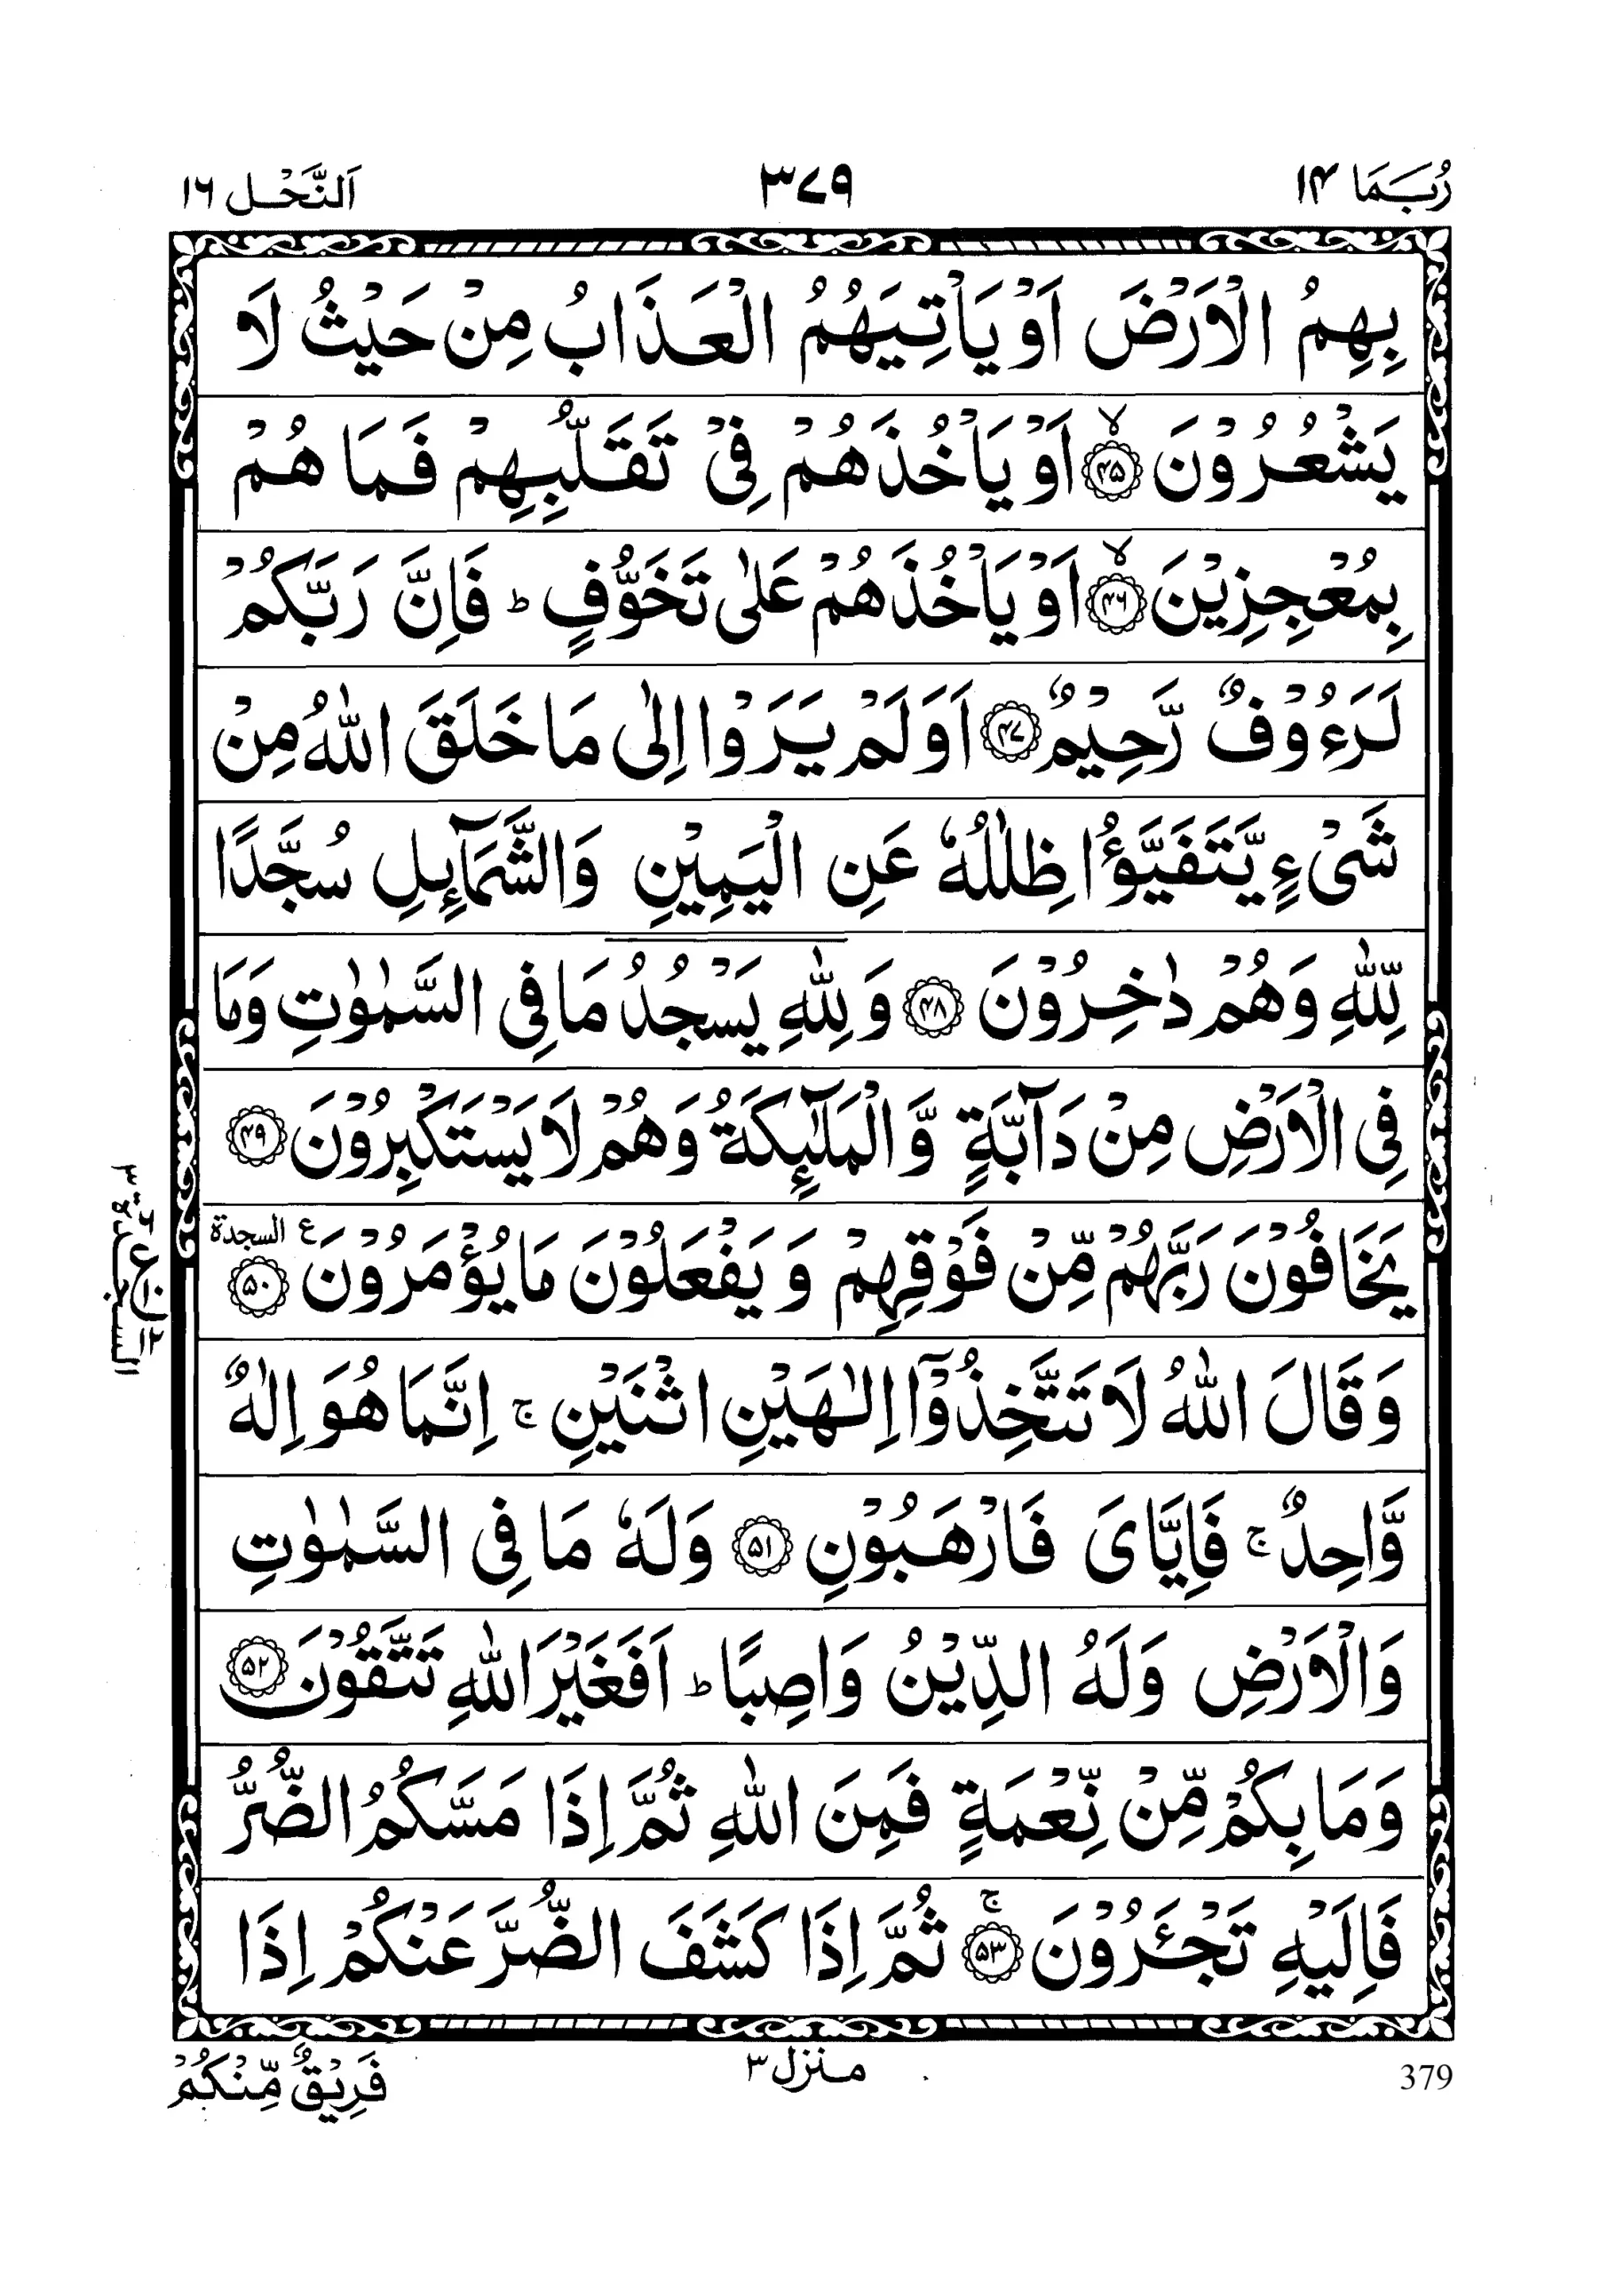 رُبَمَا ۱۴
۳۷۹
اَلنَّحْل ۱۶
بِهِمُ الْاَرْضَ اَوْ يَاْتِيَهُمُ الْعَذَابُ مِنْ حَيْثُ لَا
يَشْعُرُوْنَ ۙ﴿۴۵﴾ اَوْ يَاْخُذَهُمْ فِيْ تَقَلُّبِهِمْ فَمَا هُمْ
بِمُعْجِزِيْنَ ۙ﴿۴۶﴾ اَوْ يَاْخُذَهُمْ عَلٰى تَخَوُّفٍ ؕ فَاِنَّ رَبَّكُمْ
لَرَءُوْفٌ رَّحِيْمٌ ﴿۴۷﴾ اَوَلَمْ يَرَوْا اِلٰى مَا خَلَقَ اللّٰهُ مِنْ
شَيْءٍ يَّتَفَيَّؤُا ظِلٰلُهٗ عَنِ الْيَمِيْنِ وَالشَّمَآئِلِ سُجَّدًا
لِّلّٰهِ وَهُمْ دٰخِرُوْنَ ﴿۴۸﴾ وَلِلّٰهِ يَسْجُدُ مَا فِي السَّمٰوٰتِ وَمَا
فِي الْاَرْضِ مِنْ دَآبَّةٍ وَّالْمَلٰٓئِكَةُ وَهُمْ لَا يَسْتَكْبِرُوْنَ ﴿۴۹﴾
يَخَافُوْنَ رَبَّهُمْ مِّنْ فَوْقِهِمْ وَيَفْعَلُوْنَ مَا يُؤْمَرُوْنَ ﴿۵۰﴾ ع السجدة
وَقَالَ اللّٰهُ لَا تَتَّخِذُوْٓا اِلٰهَيْنِ اثْنَيْنِ ۚ اِنَّمَا هُوَ اِلٰهٌ
وَّاحِدٌ ۚ فَاِيَّايَ فَارْهَبُوْنِ ﴿۵۱﴾ وَلَهٗ مَا فِي السَّمٰوٰتِ
وَالْاَرْضِ وَلَهُ الدِّيْنُ وَاصِبًا ؕ اَفَغَيْرَ اللّٰهِ تَتَّقُوْنَ ﴿۵۲﴾
وَمَا بِكُمْ مِّنْ نِّعْمَةٍ فَمِنَ اللّٰهِ ثُمَّ اِذَا مَسَّكُمُ الضُّرُّ
فَاِلَيْهِ تَجْـَٔرُوْنَ ۚ﴿۵۳﴾ ثُمَّ اِذَا كَشَفَ الضُّرَّ عَنْكُمْ اِذَا
السجدة ۳
379
منزل ۳
فَرِيْقٌ مِّنْكُمْ